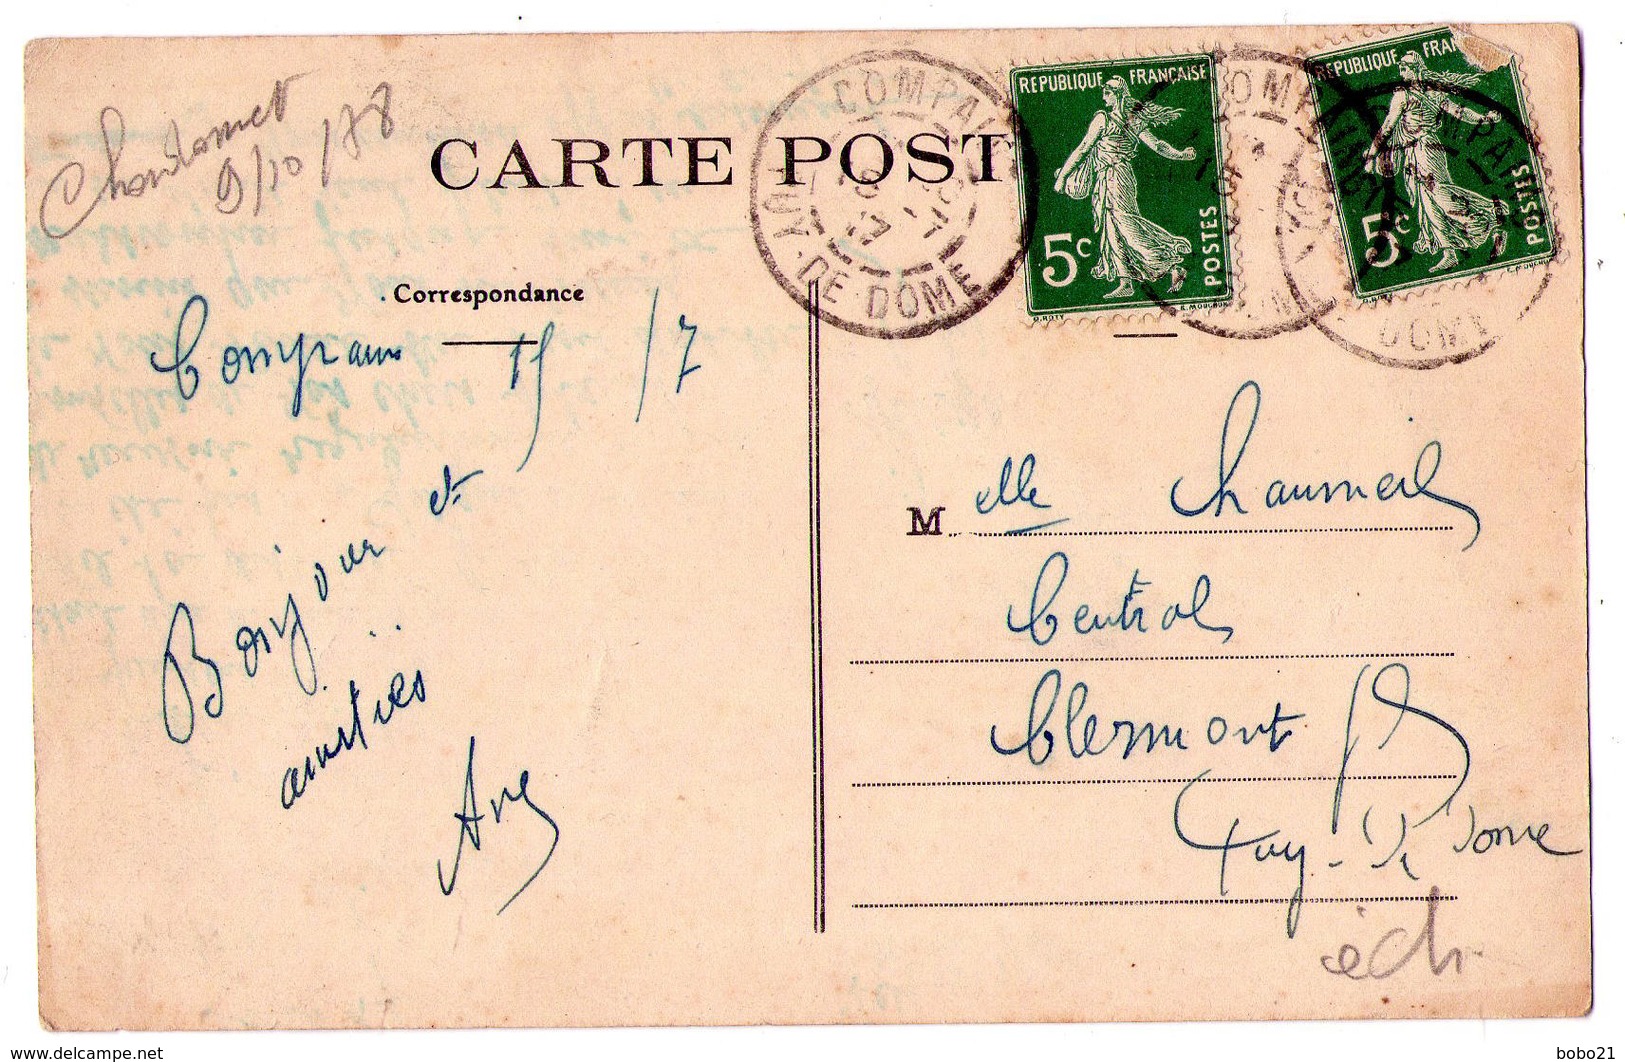 Chandamet
9/10/78
CARTE POST
Correspondance
COMPAINS
PUY-DE-DOME
REPUBLIQUE FRANÇAISE
5c
POSTES
O.ROTY
E.MOUCHON
REPUBLIQUE FRAN
5c
POSTES
DOME
Compains 15/7
Bonjour et
amitiés
M elle Chaumeil
Central
Clermont Fd
Puy-de Dome
éch
bobo21
www.delcampe.net